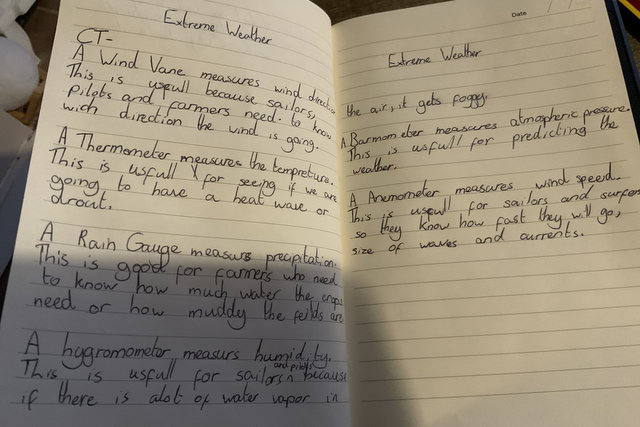 Extreme Weather
CT-
A Wind Vane measures wind direction
This is usefull because sailors,
pilots and farmers need to know
wich direction the wind is going.
A Thermometer measures the tempreture.
This is usfull for seeing if we are
going to have a heat wave or
drout.
A Rain Gauge measurs precipitation.
This is good for farmers who need
to know how much water the crops
need or how muddy the feilds are
A hygromometer measurs humidity.
This is usfull for sailors and pilots because
if there is alot of water vapor in
Date
Extreme Weather
the air, it gets foggy.
A Barmometer measures atmospheric pressure.
This is usfull for predicting the
weather.
A Anemometer measures wind speed.
This is usfull for sailors and surfers
so they know how fast they will go,
size of waves and currents.